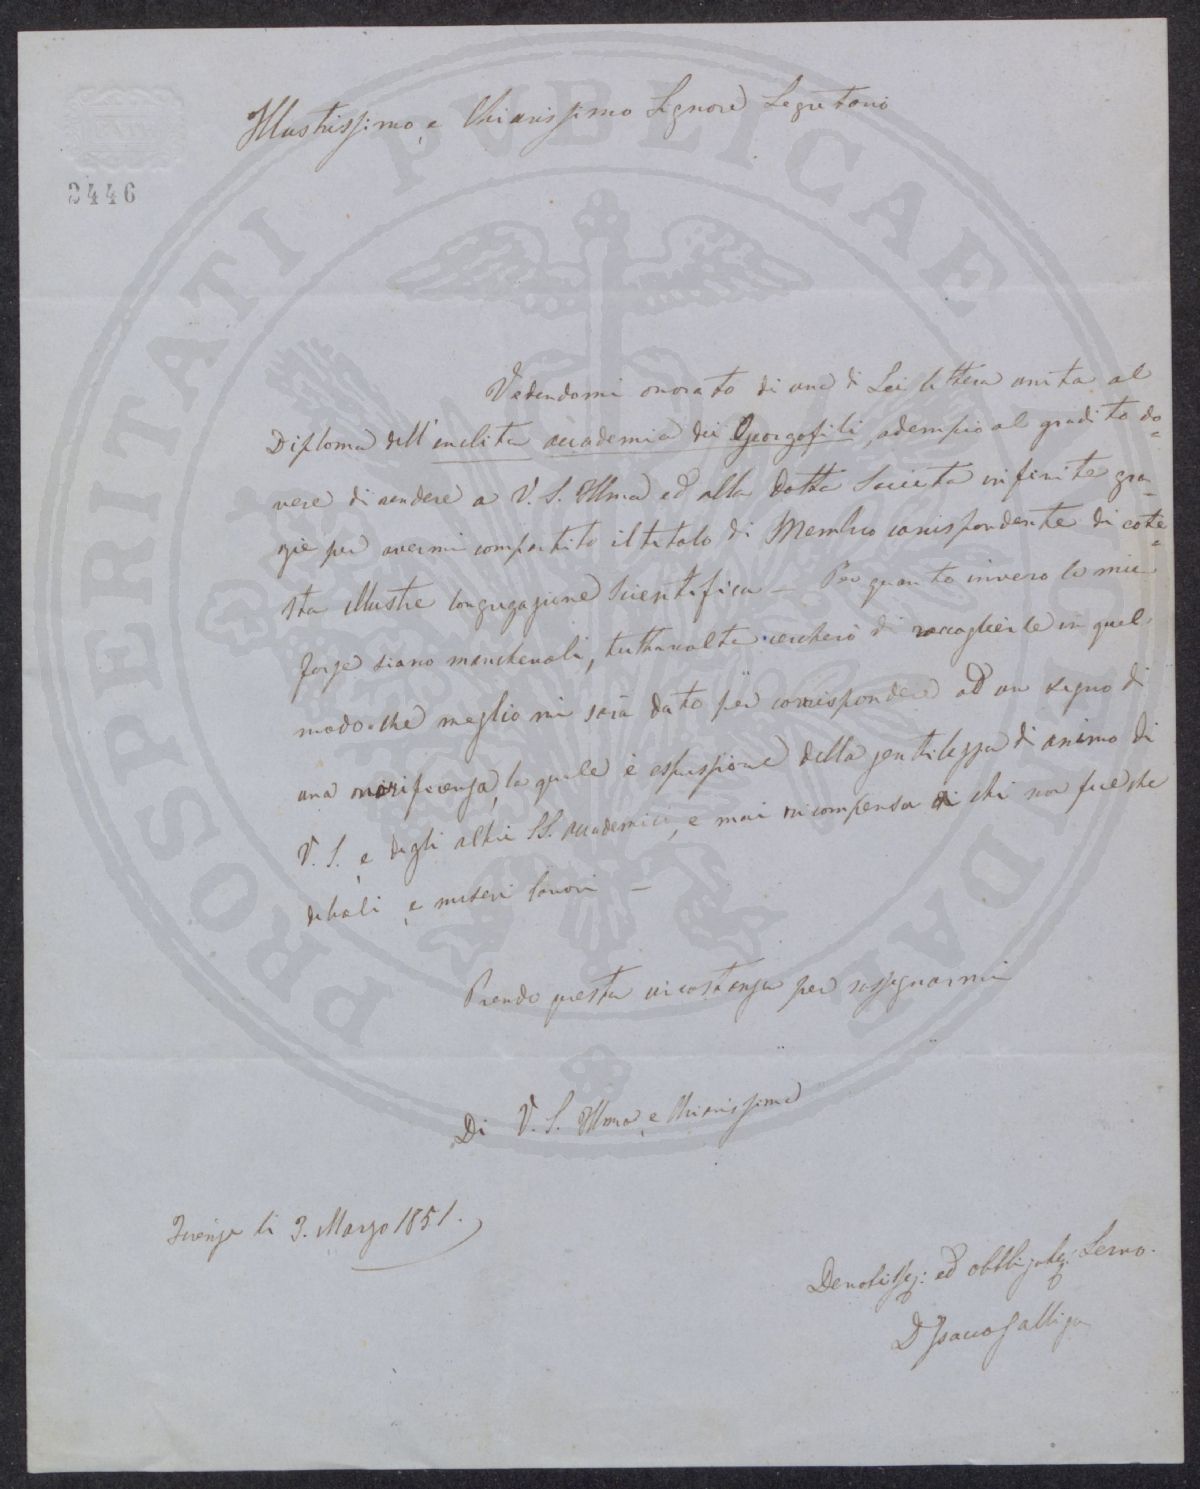 Illustrissimo, e Chiarissimo Signore Segretario
2446
PROSPERITATI PVBLICAE AVGENDAE
Vedendomi onorato di una di Lei lettera unita al
Diploma dell'inclita accademia dei Georgofili, adempio al gradito do=
vere di rendere a V. S. Illma ed alla Dotta Società infinite gra=
zie per avermi compartito il titolo di Membro corrispondente di cote=
sta illustre Congregazione Scientifica — Per quanto invero le mie
forze siano manchevoli, tuttavolta cercherò di raccoglierle in quel
modo che meglio mi sarà dato per corrispondere ad un segno di
una onorificenza, la quale è espressione della gentilezza di animo di
V. S. e degli altri SS. accademici, e mai ricompensa di chi non fece che
deboli e miseri lavori —
Prendo questa circostanza per segnarmi
Di V. S. Illma, e Chiarissima
Firenze li 3. Marzo 1851.
Devotiss: ed obbligats: Servo.
D Isacco Galligo